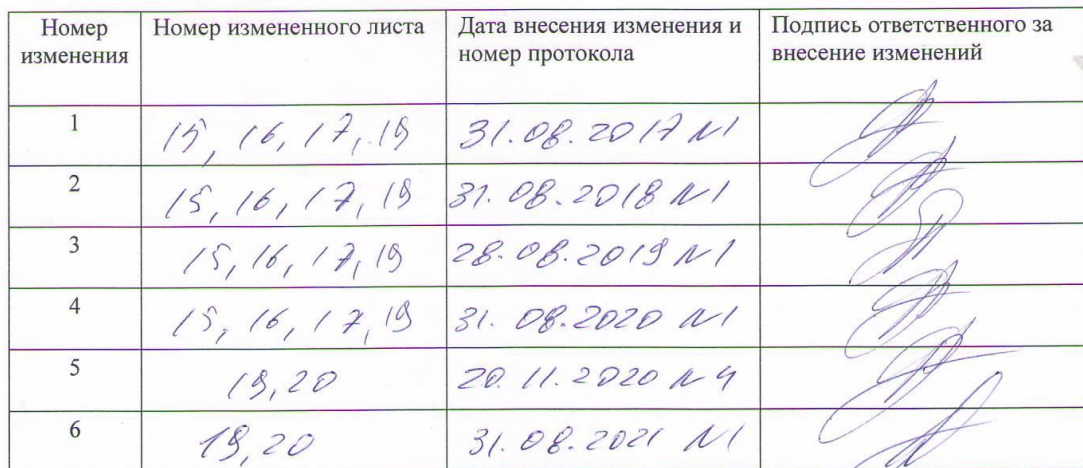 Номер изменения Номер измененного листа Дата внесения изменения и номер протокола Подпись ответственного за внесение изменений
1 15, 16, 17, 19 31.08.2017 №1
2 15, 16, 17, 19 31.08.2018 №1
3 15, 16, 17, 19 28.08.2019 №1
4 15, 16, 17, 19 31.08.2020 №1
5 19, 20 20.11.2020 №4
6 19, 20 31.08.2021 №1